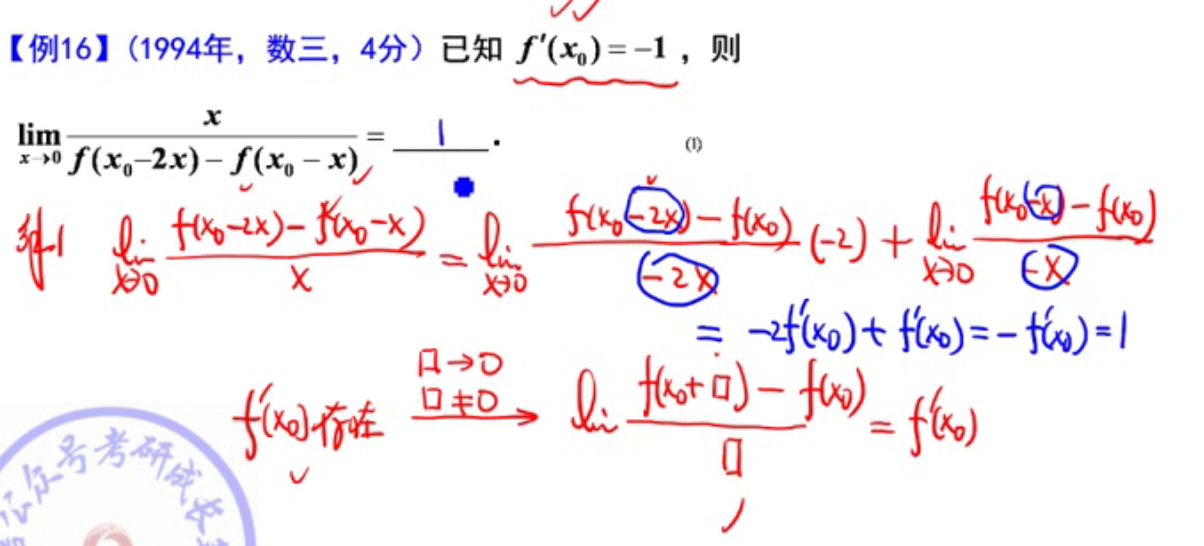 【例16】(1994年，数三，4分) 已知 f′(x₀)=−1，则
lim x→0 x/(f(x₀−2x)−f(x₀−x)) = 1 .
(1)
lim x→0 (f(x₀−2x)−f(x₀−x))/x = lim x→0 (f(x₀−2x)−f(x₀))/(−2x) (−2) + lim x→0 (f(x₀−x)−f(x₀))/(−x)
= −2f′(x₀)+f′(x₀)=−f′(x₀)=1
f′(x₀)存在 □→0 □≠0 → lim (f(x₀+□)−f(x₀))/□ = f′(x₀)
公众号考研成长